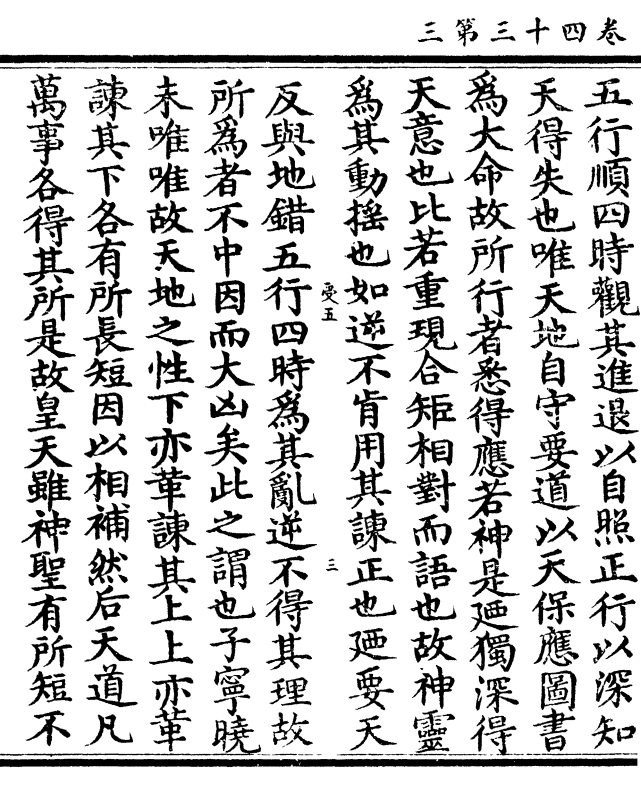 卷四十三第三
五行順四時觀其進退以自照正行以深知
天得失也唯天地自守要道以天保應圖書
為大命故所行者悉得應若神是廼獨深得
天意也比若重現合矩相對而語也故神靈
為其動搖也如逆不肯用其諫正也廼要天
受五
三
反與地錯五行四時為其亂逆不得其理故
所為者不中因而大凶矣此之謂也子寧曉
未唯唯故天地之性下亦革諫其上上亦革
諫其下各有所長短因以相補然后天道凡
萬事各得其所是故皇天雖神聖有所短不